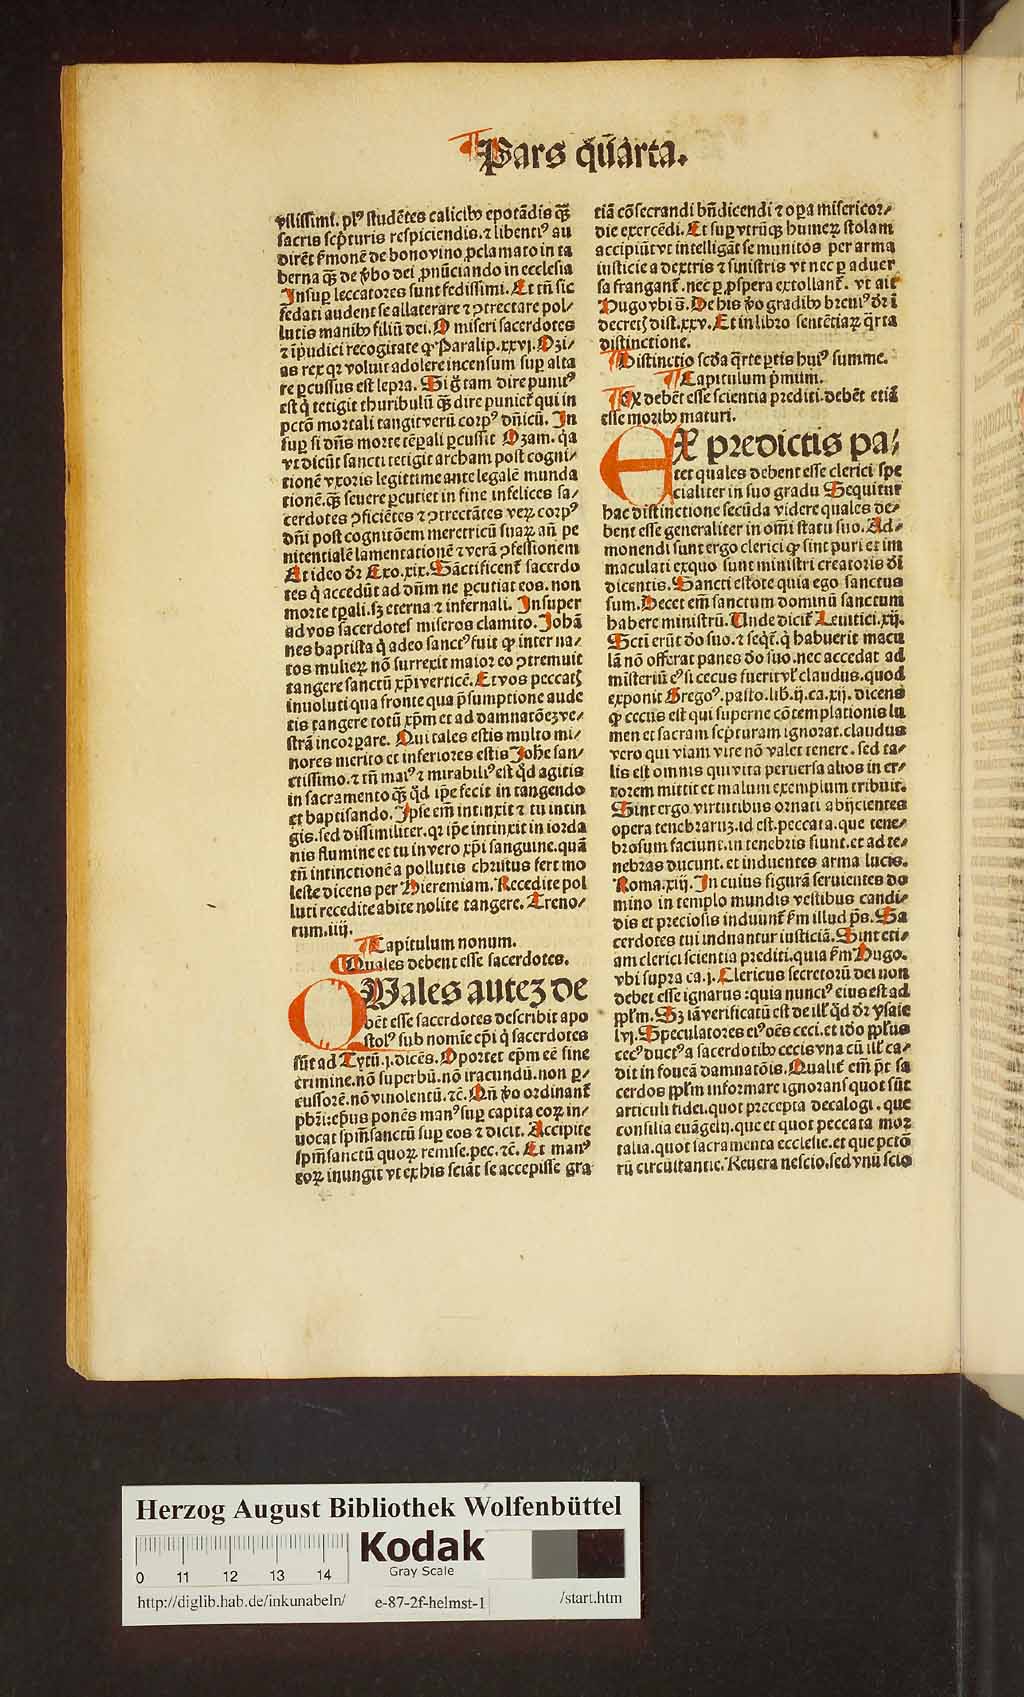 Pars quarta.
vilissimi. plꝰ studẽtes calicibꝰ epotãdis qᷓꝫ
sacris scpͥturis respiciendis. ⁊ libentiꝰ au
dirẽt ẜmonẽ de bono vino ꝓclamato in ta
berna qᷓꝫ de ꝟbo dei ꝓnũciando in ecclesia
Insuꝑ leccatores sunt fedissimi. Et tñ sic
fedati audent se allaterare ⁊ ↄtrectare pol⸗
lutis manibꝰ filiũ dei. O miseri sacerdotes
⁊ ip̃udici recogitate ꝙ Paralip. xxvj. Ozi⸗
as rex qꝛ voluit adolere incensum suꝑ alta
re ꝑcussus est lepra. Si gͦ tam dire punitꝰ
est qͥ tetigit thuribulũ qᷓꝫ dire punieƭ qui in
pctõ mortali tangit verũ corpꝰ dñicũ. In
suꝑ si dñs morte tẽpali ꝑcussit Ozam. qᷓa
vt dicũt sancti tetigit archam post cogni⸗
tionẽ vxoris legittime ante legalẽ munda
tionẽ. qᷓꝫ seuere ꝑcutiet in fine infelices sa⸗
cerdotes ↄficiẽtes ⁊ ↄtrectãtes veꝝ corpꝰ
dñi post cognitõem meretricũ suaꝝ añ pe
nitentialẽ lamentationẽ ⁊ verã ↄfessionem
Et ideo dr̃ Exo. xix. Sãctificenƭ sacerdo
tes qͥ accedũt ad dñm ne ꝑcutiat eos. non
morte tꝑali. sꝫ eterna ⁊ infernali. Insuper
ad vos sacerdotes miseros clamito. Johã
nes baptista qͥ adeo sanctꝰ fuit ꝙ inter na⸗
tos mulieꝝ nõ surrexit maior eo ↄtremuit
tangere sanctũ xp̃i verticẽ. Et vos peccatꝭ
inuoluti qua fronte qua p̃sumptione aude
tis tangere totũ xp̃m et ad damnatõeꝫ ve⸗
strã incorꝑare. Qui tales estis multo mi⸗
nores merito et inferiores estis Johe san⸗
ctissimo. ⁊ tñ maiꝰ ⁊ mirabiliꝰ est qͥd agitis
in sacramento qᷓꝫ qͥd ipẽ fecit in tangendo
et baptisando. Ipse em̃ intinxit ⁊ tu intin
gis. sed dissimiliter. qꝛ ipẽ intinxit in iorda
nis flumine et tu in vero xp̃i sanguine. quã
tñ intinctionẽ a pollutis christus fert mo
leste dicens per Hieremiam. Recedite pol
luti recedite abite nolite tangere. Treno⸗
rum. iiij.
Capitulum nonum.
Quales debent esse sacerdotes.
QUales auteꝫ de
bẽt esse sacerdotes describit apo
stolꝰ sub nomĩe ep̃i qͥ sacerdotes
sũt ad Tytũ. j. dicẽs. Oportet ep̃m eẽ sine
crimine. nõ superbũ. nõ iracundũ. non ꝑ⸗
cussorẽ. nõ vinolentũ. ⁊c. Qñ ꝟo ordinanƭ
pbr̃i: ep̃us ponẽs manꝰ suꝑ capita eoꝝ in⸗
uocat spm̃ sanctũ suꝑ eos ⁊ dicit. Accipite
spm̃ sanctũ quoꝝ remise. pec. ⁊c. Et manꝰ
eoꝝ inungit vt ex his sciãt se accepisse gra
tiã cõsecrandi bñdicendi ⁊ oꝑa misericor⸗
die exercẽdi. Et suꝑ vtrũqꝫ humeꝝ stolam
accipiũt vt intelligãt se munitos per arma
iusticie a dextris ⁊ sinistris vt nec ꝑ aduer
sa franganƭ. nec ꝑ ꝓspera extollanƭ. vt ait
Hugo vbi s̃. De his ꝟo gradibꝰ breuiꝰ dr̃ ĩ
decretꝭ dist. xxv. Et in libro sentẽtiaꝝ qͣrta
distinctione.
Distinctio scd̃a qͣrte ꝑtis huiꝰ summe.
Capitulum pͥmum.
EX debẽt esse scientia prediti. debẽt etiã
esse moribꝰ maturi.
EX predictis pa⸗
tet quales debent esse clerici spe
cialiter in suo gradu Sequitur
hac distinctione secũda videre quales de⸗
bent esse generaliter in om̃i statu suo. Ad⸗
monendi sunt ergo clerici ꝙ sint puri et im
maculati exquo sunt ministri creatoris dĩ
dicentis. Sancti estote quia ego sanctus
sum. Decet em̃ sanctum dominũ sanctum
habere ministrũ. Unde diciƭ Leuitici. xij.
Scti erũt do suo. ⁊ seqƭ. qͥ habuerit macu
lã nõ offerat panes do suo. nec accedat ad
misteriũ eꝰ si cecus fuerit vƚ claudus. quod
exponit Gregoꝰ. pasto. lib. ij. ca. xij. dicens
ꝙ cecus est qui superne cõtemplationis lu
men et sacram scpͥturam ignorat. claudus
vero qui viam vite nõ valet tenere. sed ta⸗
lis est omnis qui vita peruersa alios in er⸗
rorem mittit et malum exemplum tribuit.
Sint ergo. virtutibus ornati abijcientes
opera tenebraruꝫ. id est. peccata. que tene⸗
brosum faciunt. in tenebris fiunt. et ad te⸗
nebras ducunt. et induentes arma lucis.
Roma. xiij. In cuius figurã seruientes do
mino in templo mundis vestibus candi⸗
dis et preciosis induunƭ ẜm illud ps. Sa
cerdotes tui induantur iusticiã. Sint eti⸗
am clerici scientia prediti. quia ẜm Hugo.
vbi supra ca. j. Clericus secretorũ dei non
debet esse ignarus: quia nunciꝰ eius est ad
pplm̃. Sꝫ iã verificatũ est de illƚ qͥd dr̃ ysaie
lvj. Speculatores eiꝰ oẽs ceci. et ido pplũs
cecꝰ ductꝰ a sacerdotibꝰ cecis vna cũ illƚ ca⸗
dit in foueã damnatõis. Qualiƭ em̃ p̃t sa
cerdos pplm̃ informare ignorans quot sũt
articuli fidei. quot precepta decalogi. que
consilia euãgelij. que et quot peccata moꝛ
talia. quot sacramenta ecclesie. et que pctõ
rũ circũstantie. Reuera nescio. sed vnũ scio
Herzog August Bibliothek Wolfenbüttel
Kodak
Gray Scale
0 11 12 13 14
http://diglib.hab.de/inkunabeln/ e-87-2f-helmst-1 /start.htm